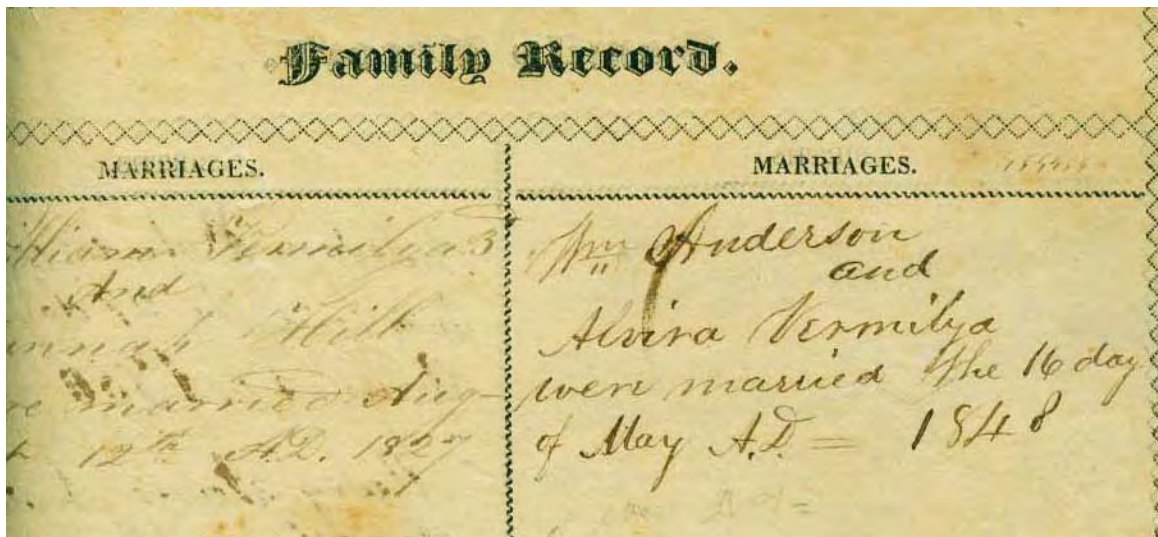 Family Record.
MARRIAGES.
lliam Vermilya
And
nnah Hill
re married Aug-
t 12th A.D. 1827
MARRIAGES.
Wm Anderson
and
Alvira Vermilya
were married the 16 day
of May A.D. = 1848